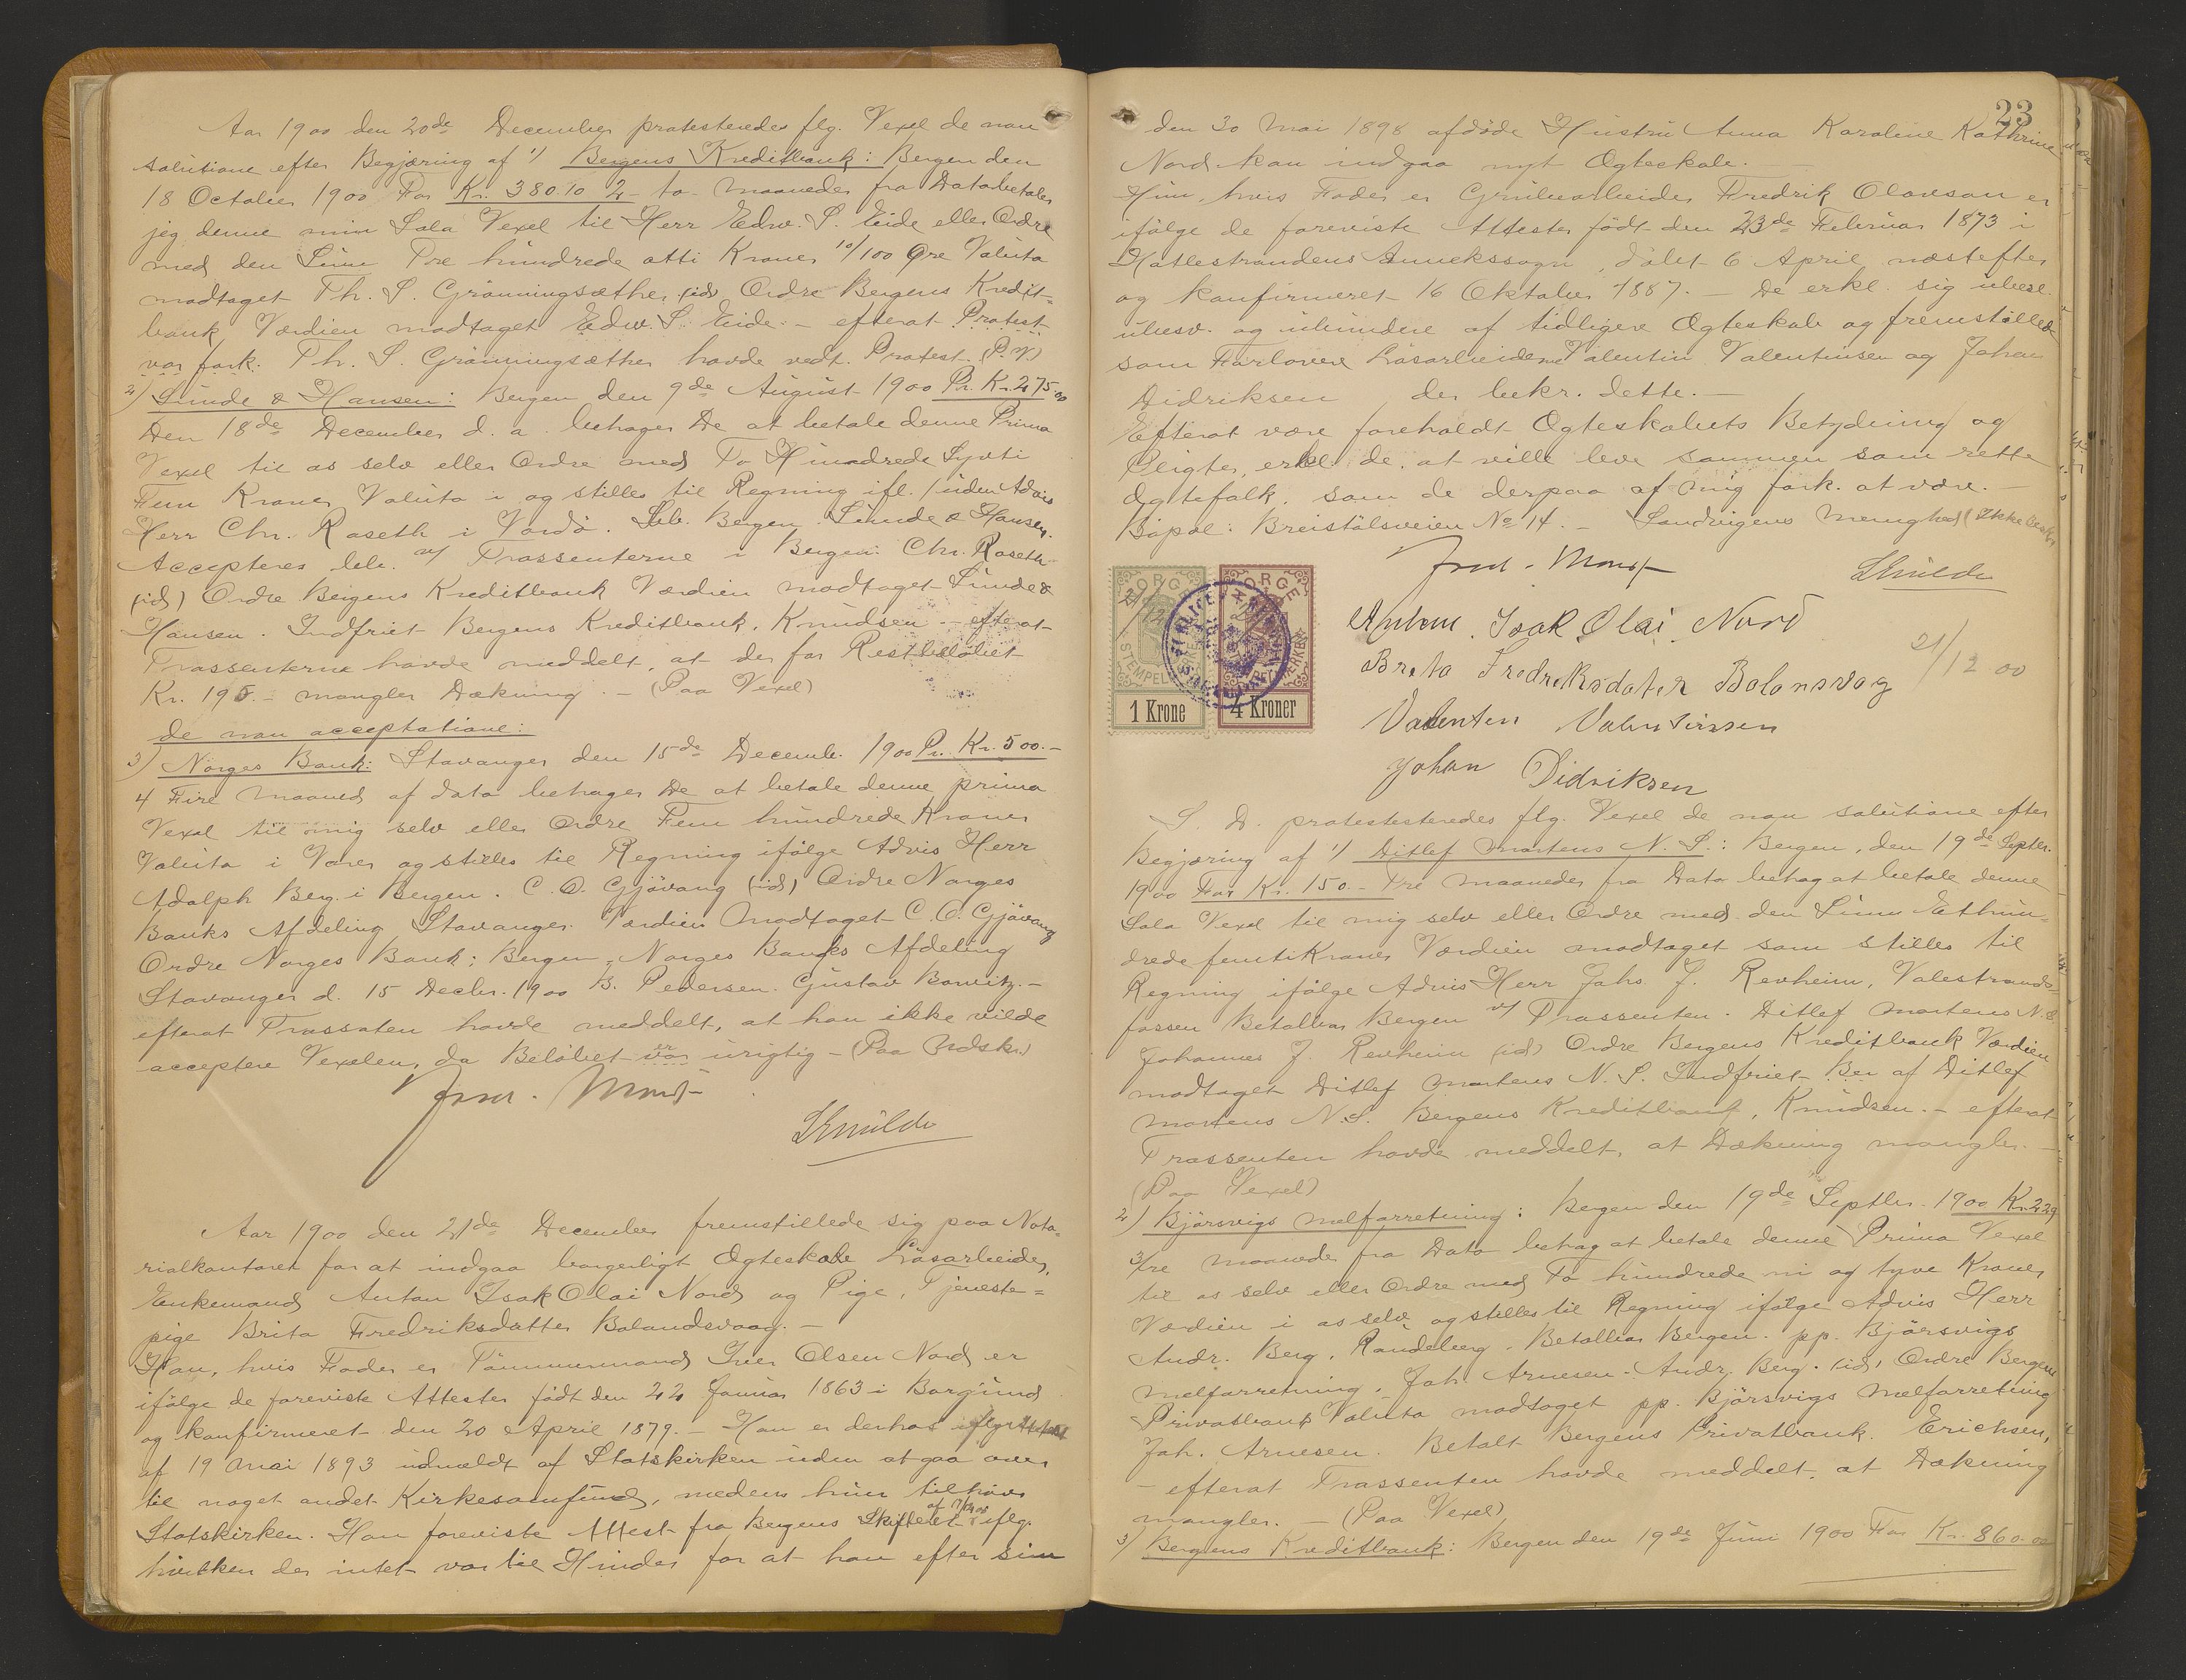 Aar 1900 den 20de December protesteredes flg. Vexel de non
solutione efter Begjæring af 1) Bergens Kreditbank: Bergen den
18 October 1900 For Kr. 380 10 2 to maaneder fra Dato betaler
jeg denne min Sola Vexel til Herr Edw. S. Eide eller Ordre
med den Sum Tre hundrede otti Kroner 10/100 Øre Valuta
modtaget Th. S. Grønningsæther (id) Ordre Bergens Kredit=
bank Værdien modtaget Edw. S. Eide. – efterat Protest
var fork. Th. S. Grønningsæther havde vedt. Protest (P.V.)
2) Lunde & Hansen: Bergen den 9de August 1900 Pr. Kr. 275.00
Den 18de December d. a. behager De at betale denne Prima
Vexel til os selv eller Ordre med To Hundrede Sytti
Fem Kroner Valuta i og stilles til Regning ifl. / uden Advis
Herr Chr. Roseth i Vardø. Bet. Bergen. Lunde & Hansen.
Accepteres bet. v/ Trassenterne i Bergen. Chr. Roseth
(id) Ordre Bergens Kreditbank Værdien modtaget Lunde &
Hansen. Indfriet Bergens Kreditbank, Knudsen. – efterat
Trassenterne havde meddelt, at der for Restbeløbet
Kr. 195.– mangler Dækning. – (Paa Vexel)
de non acceptatione:
3) Norges Bank: Stavanger den 15de Decemb. 1900 Pr. Kr. 500.–
4 Fire maaned af dato behager De at betale denne prima
Vexel til mig selv eller Ordre Fem hundrede Kroner
Valuta i Varer og stilles til Regning ifølge Advis Herr
Adolph Berg i Bergen. C. O. Gjøvang (id) Ordre Norges
Banks Afdeling Stavanger Værdien modtaget C. O. Gjøvang
Ordre Norges Bank; Bergen, Norges Banks Afdeling
Stavanger d. 15 Decbr. 1900 B. Pedersen. Gustav Bowitz. –
efterat Trassaten havde meddelt, at han ikke vilde
acceptere Vexelen, da Beløbet var er urigtig – (Paa Udskr.)
Skulde
Aar 1900 den 21de December fremstillede sig paa Nota=
rialkontoret for at indgaa borgerligt Ægteskab Løsarbeider,
Enkemand Anton Isak Olai Nord og Pige, Tjeneste=
pige Brita Fredriksdatter Bolandsvaag. –
Han, hvis Fader er Tømmermand Iver Olsen Nord er
ifølge de foreviste Attester født den 22 Januar 1863 i Borgund
og konfirmeret den 20 April 1879. – Han er derhos iflg. Attest
af 19 Mai 1893 udmeldt af Statskirken uden at gaa over
til noget andet Kirkesamfund, medens hun tilhører
Statskirken. Han foreviste Attest fra Bergens Skifteret iflg.
hvilken der intet var til Hinder for at han efter sin
23
den 30 Mai 1898 afdøde Hustru Anna Karoline Kathrine
Nord kan indgaa nyt Ægteskab. –
Hun, hvis Fader er Grubearbeider Fredrik Olavson er
ifølge de foreviste Attester født den 23de Februar 1873 i
Hatlestrandens Annekssogn, døbt 6 April næstefter
og konfirmeret 16 Oktober 1887. – De erkl. sig ubesl.
ubesv. og uhindere af tidligere Ægteskab og fremstillede
som Forlovere Løsarbeiderne Valentin Valentinsen og Johan
Didriksen der bekr. dette. –
Efterat være foreholdt Ægteskabets Betydning og
Pligter, erkl. de, at ville leve sammen som rette
Ægtefolk, som de derpaa af mig fork. at være. –
Bopæl: Breistølsveien No 14. – Sandvigens Menighed (Ikke beskr.)
Skulde
NORGE
STEMPEL
1 Krone
NORGE
4 Kroner
Anton Isak Olai Nord
21/12 00
Breta Fredreksdater Bolansvag
Valenten Valentinsen
Johan Didriksen
S. D. protestesteredes flg. Vexel de non solutione efter
Begjæring af 1) Ditlef Martens N. S.: Bergen, den 19de Septbr.
1900 For Kr. 150.– Tre maaneder fra Dato behag at betale denne
Sola Vexel til mig selv eller Ordre med den Sum Ethun=
drede femti Kroner Værdien modtaget som stilles til
Regning ifølge Advis Herr Johs. J. Revheim, Valestrands=
fossen Betalbar Bergen v/ Trassenten. Ditlef Martens N. S.
Johannes J. Revheim (id) Ordre Bergens Kreditbank Værdien
modtaget Ditlef Martens N. S. Indfriet Ber af Ditlef
Martens N. S. Bergens Kreditbank, Knudsen. – efterat
Trassenten havde meddelt, at Dækning mangler. –
(Paa Vexel)
2) Bjørsvigs melforretning: Bergen den 19de Septbr. 1900 Kr. 229
3/tre maaneder fra Dato behag at betale denne Prima Vexel
til os selv eller Ordre med To hundrede ni og tyve Kroner
Værdien i os selv og stilles til Regning ifølge Advis Herr
Andr. Berg, Randeberg. Betalbar Bergen. pp. Bjørsvigs
melforretning, Joh. Arnesen. Andr. Berg. (id) Ordre Bergens
Privatbank Valuta modtaget pp. Bjørsvigs Melforretning
Joh. Arnesen. Betalt Bergens Privatbank. Erichsen,
– efterat Trassenten havde meddelt, at Dækning
mangler. – (Paa Vexel)
3) Bergens Kreditbank: Bergen den 19de Juni 1900 For Kr. 860.00